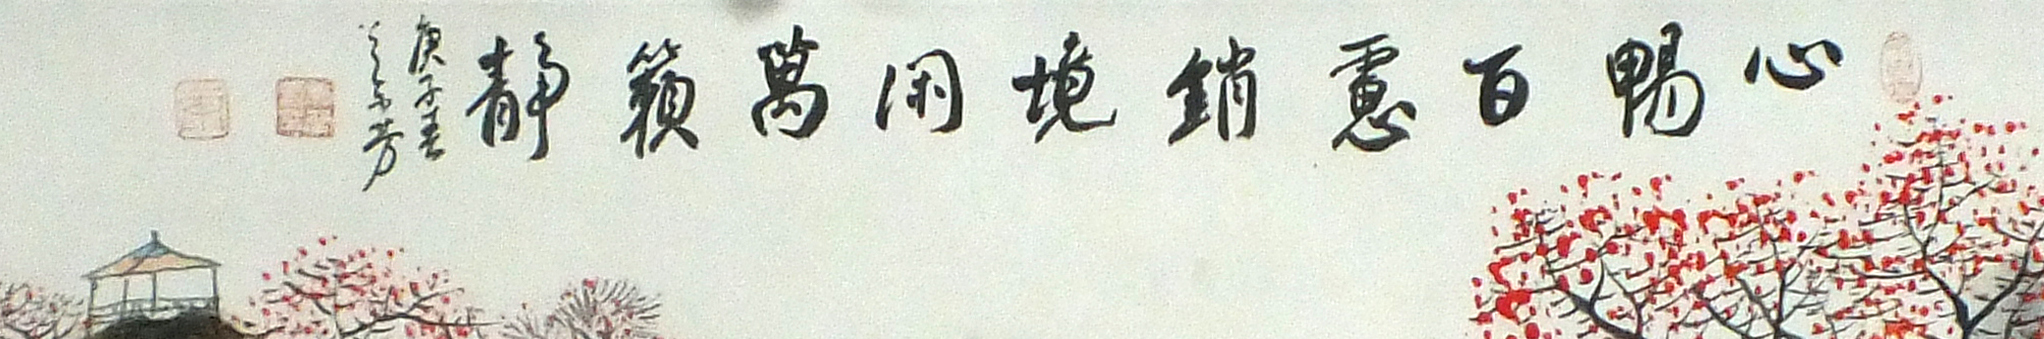 心暢百慮銷境閑萬籟靜
庚子春
芳